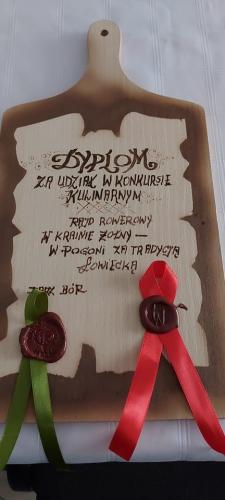 DYPLOM
ZA UDZIAŁ W KONKURSIE
KULINARNYM
RAJD ROWEROWY
W KRAINIE ŻOŁNY —
W POGONI ZA TRADYCJĄ
ŁOWIECKĄ
BÓR